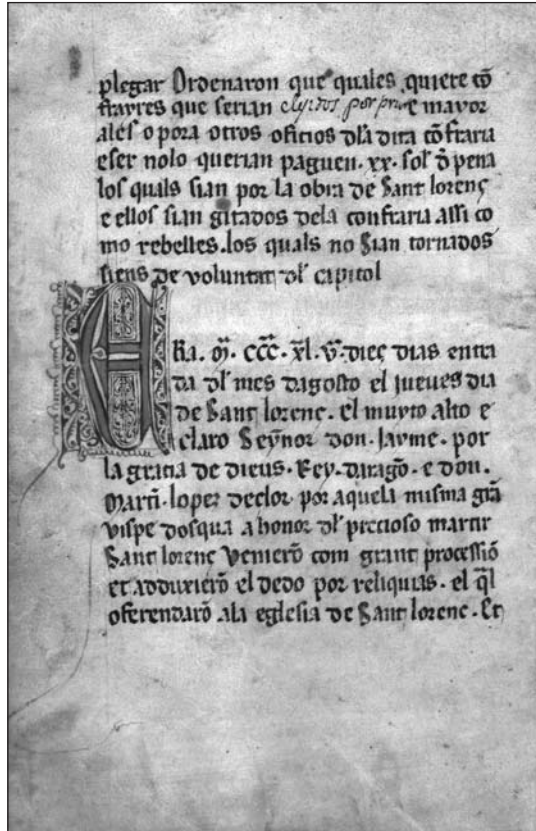 plegar Ordenaron que quales quiere cõ
frayres que serian elyidos por pri e mayor
ales o pora otros oficios dla dita cõfraria
e ser nolo querian paguen. xx. sol' đ pena
los quals sian por la obra de Sant lorenç
e ellos sian gitados dela confraria assi co
mo rebelles. los quals no sian tornados
siens de voluntat dl' capitol
ERa. M. CCC. xl. v. dieç dias entra
da dl' mes dagosto el jueves dia
de Sant lorenc. el muyto alto e
claro Seynor don. Jayme. por
la gracia de dieus. Rey. daragõ. e don.
Martĩ. lopeç declor por aquela misma grã
vispe dosqua a honor dl' precioso martir
Sant lorenc Venierõ com grant processiõ
et adduxierõ el dedo por reliquias. el q̃l
oferendarõ ala eglesia de Sant lorenc. Et